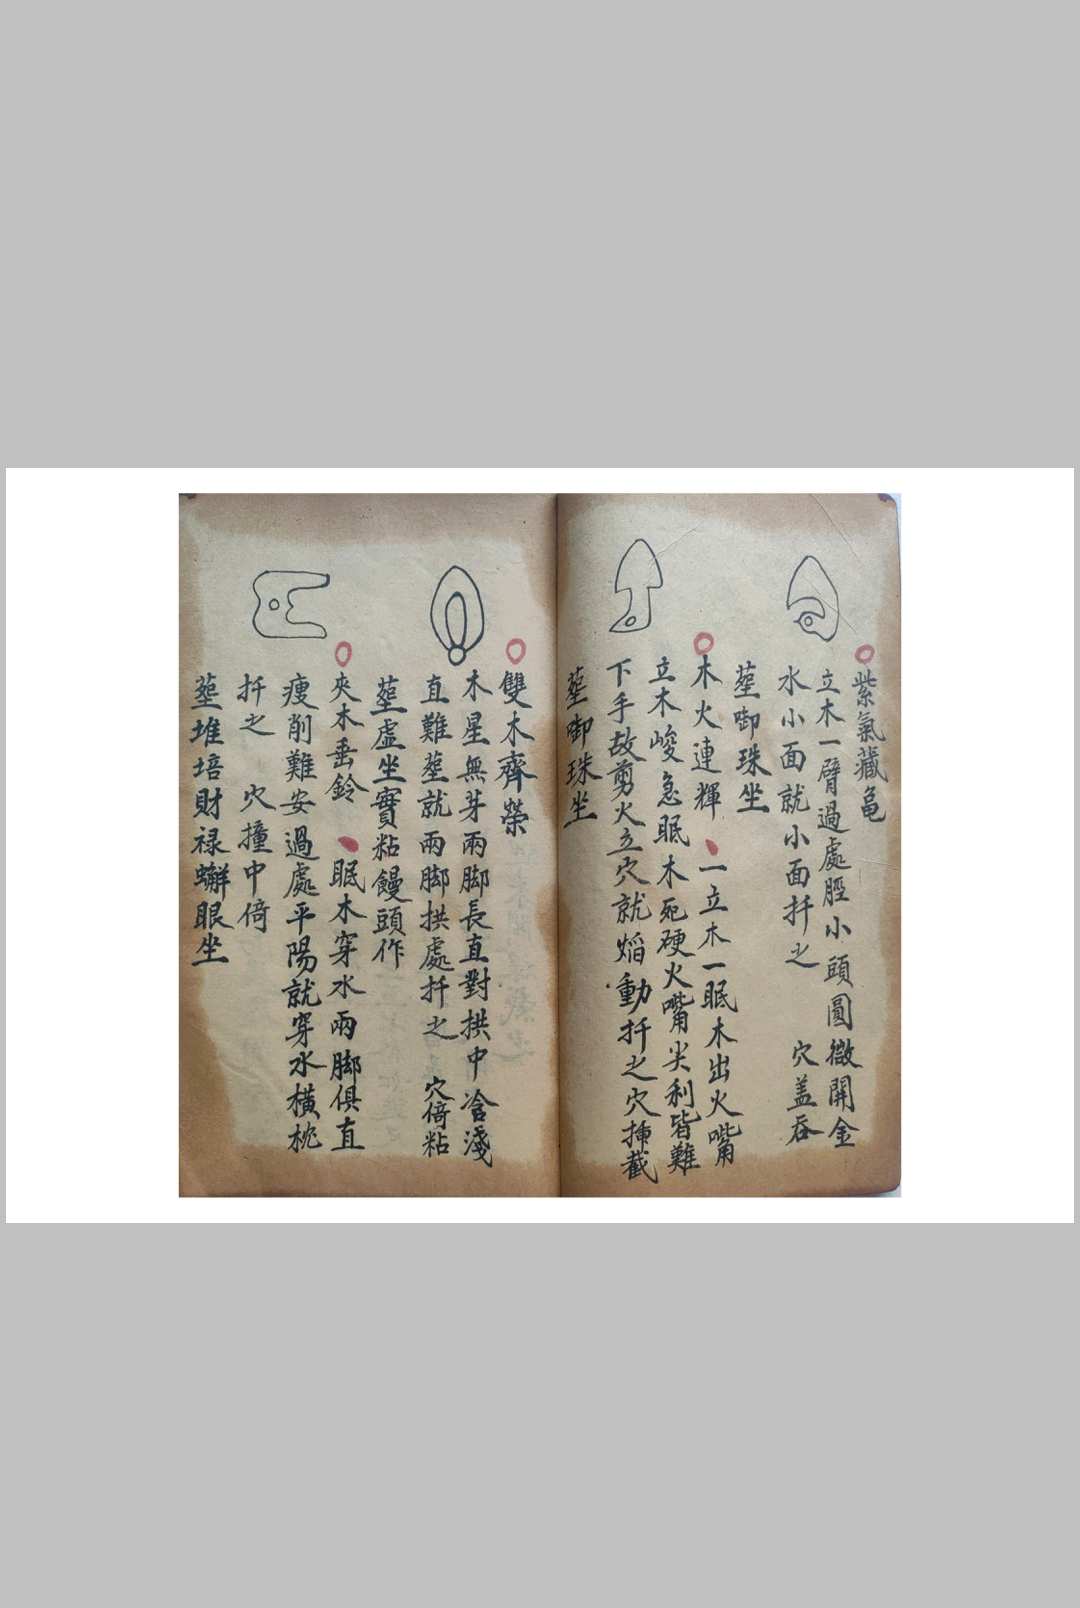 紫氣藏龜
立木一臂過處脛小頭圓微開金
水小面就小面扦之　穴盖吞
塟啣珠坐
木火連輝　一立木一眠木出火嘴
立木峻急眠木死硬火嘴尖利皆難
下手故剪火立穴就熖動扦之穴揷截
塟啣珠坐
雙木齊榮
木星無芽兩脚長直對拱中冾淺
直難塟就兩脚拱處扦之　穴倚粘
塟虛坐實粘饅頭作
夾木垂鈴　眠木穿水兩脚俱直
瘦削難安過處平陽就穿水橫枕
扦之　穴撞中倚
塟堆培財禄蠏眼坐